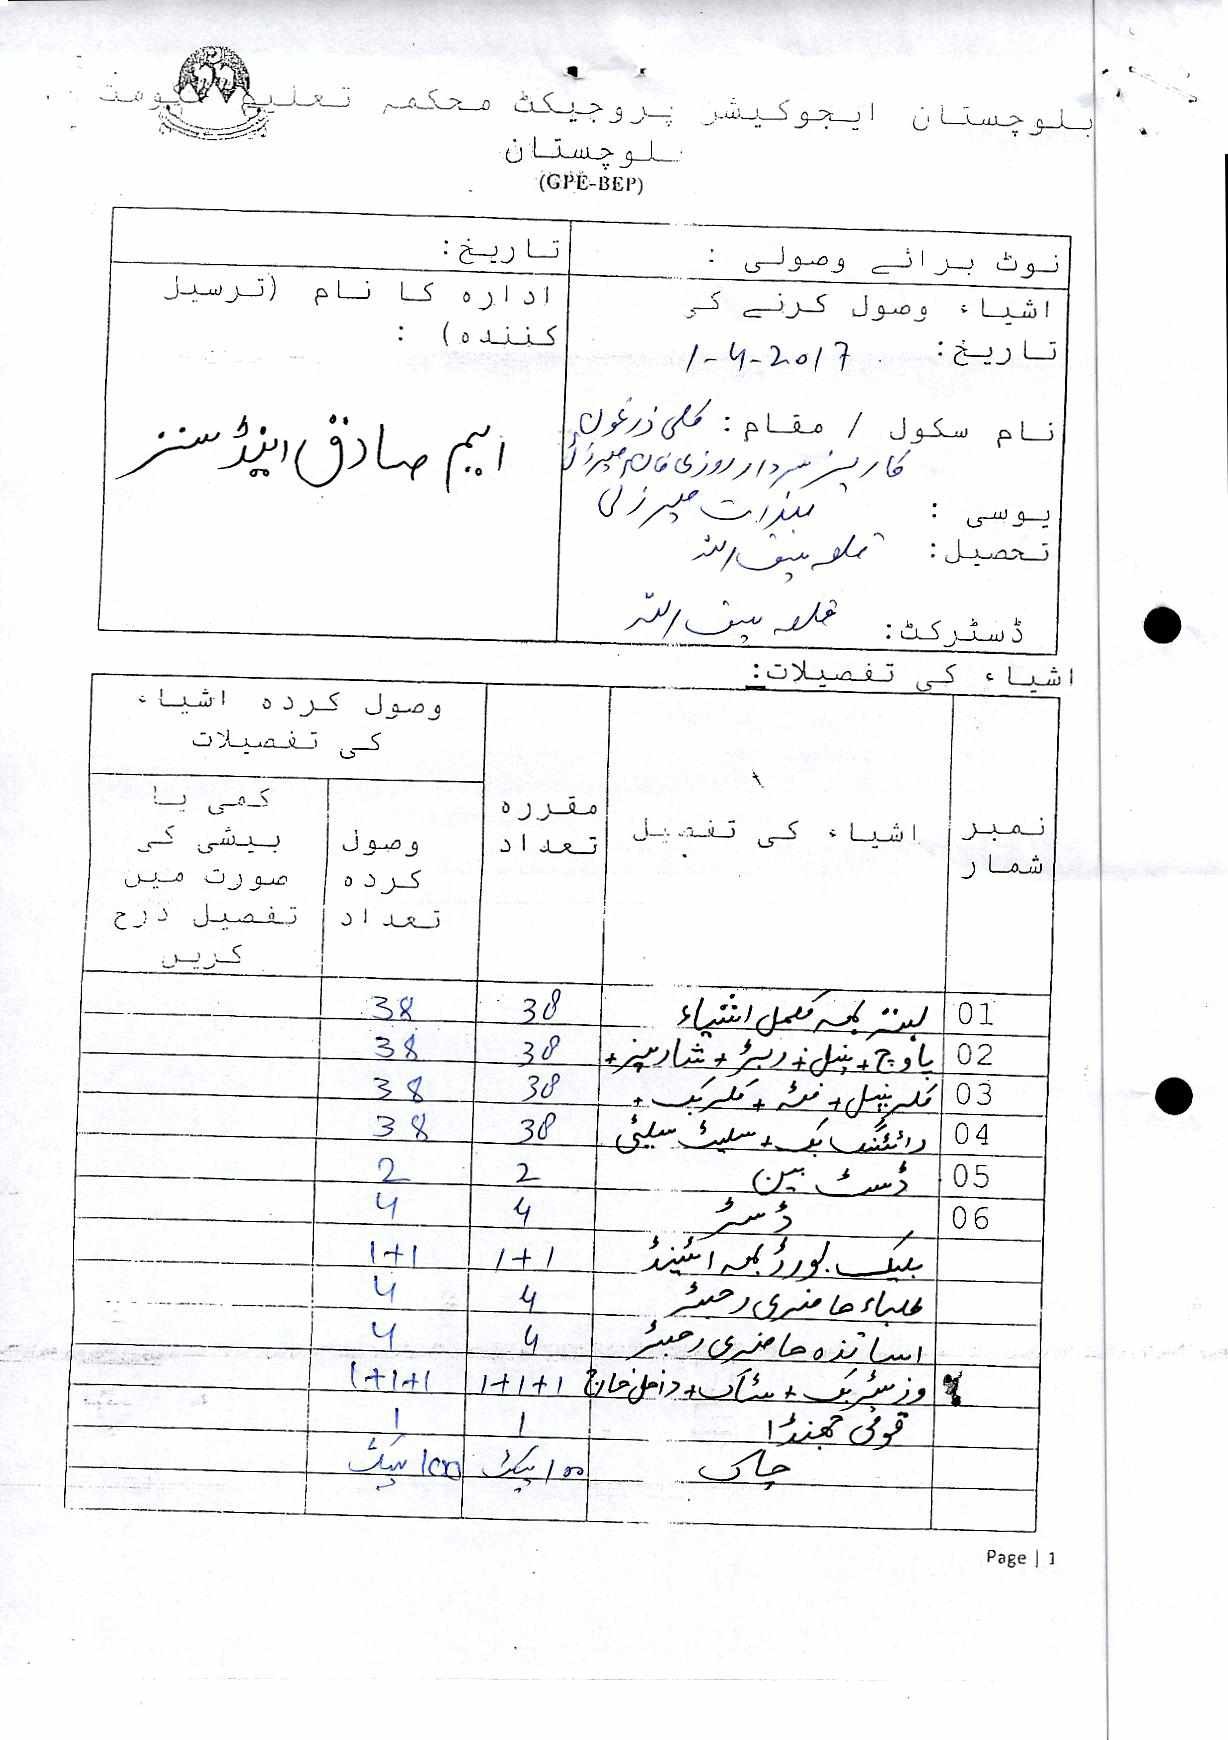 بلوچستان ایجوکیشن پروجیکٹ محکمہ تعلیم حکومت
بلوچستان
(GPE-BEP)
نوٹ برائے وصولی :
تاریخ:
اشیاء وصول کرنے کی
تاریخ: 1-4-2017
ادارہ کا نام (ترسیل
کنندہ) :
ایم صادق اینڈ سنز
نام سکول / مقام: کلی زرغون
کاریز سردار روزی خان میرزئی
یوسی : میرزئی
تحصیل: قلعہ سیف اللہ
ڈسٹرکٹ: قلعہ سیف اللہ
اشیاء کی تفصیلات:
نمبر شمار
اشیاء کی تفصیل
مقررہ تعداد
وصول کردہ اشیاء کی تفصیلات
وصول کردہ تعداد
کمی یا بیشی کی صورت میں تفصیل درج کریں
01 بستر بمعہ مکمل اشیاء 38 38
02 پاوچ + پنسل + ربڑ + شارپنر + 38 38
03 کلر پنسل + فٹہ + کلر بک + 38 38
04 رائٹنگ بک + سلیٹ سلیٹی 38 38
05 ڈسٹ بین 2 2
06 ڈسٹر 4 4
بلیک بورڈ بمعہ اسٹینڈ 1+1 1+1
طلباء حاضری رجسٹر 4 4
اساتذہ حاضری رجسٹر 4 4
وزیٹر بک + سٹاک + داخل خارج 1+1+1 1+1+1
قومی جھنڈا 1 1
چاک 100 پیکٹ 100 پیکٹ
Page | 1